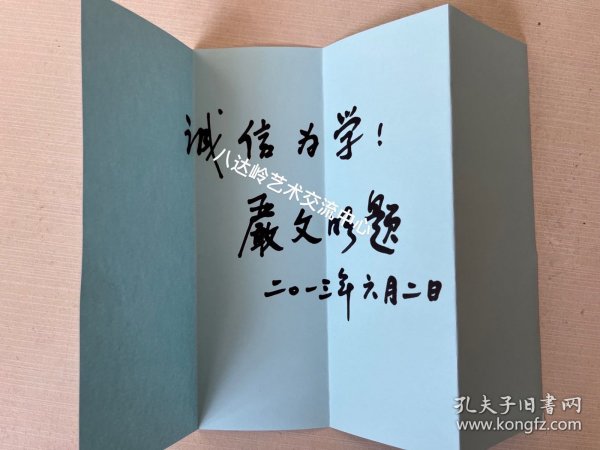 诚信为学！
严文明题
二〇一三年六月二日
八达岭艺术交流中心
孔夫子旧书网
www.kongfz.com